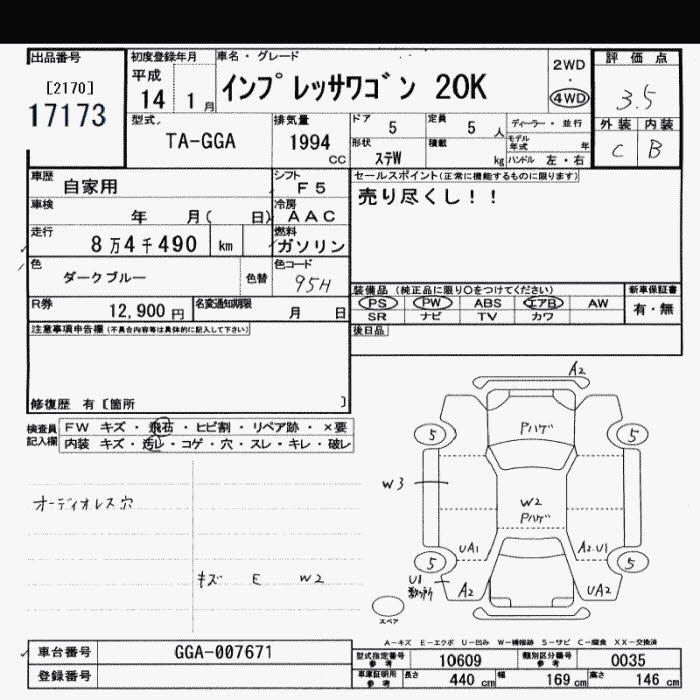 出品番号
[2170]
17173
初度登録年月
平成
14 1 月
車名・グレード
インプレッサワゴン 20K
2WD
・
4WD
評価点
3.5
外装 内装
C B
型式
TA-GGA
排気量
1994
CC
ドア 5
定員 5 人
ディーラー・並行
形状 ステW
積載 kg
モデル年式 年
ハンドル 左・右
車歴 自家用
シフト F5
車検 年 月( 日)
冷房 AAC
走行 8万4千490 km
燃料 ガソリン
色 ダークブルー 色替
色コード 95H
R券 12,900 円
名変通知期限 月 日
セールスポイント(正常に機能するものに限ります)
売り尽くし!!
装備品(純正品に限り○をつけてください)
新車保証書
PS PW ABS エアB AW
SR ナビ TV カワ
有・無
後日品
注意事項申告欄(不具合内容等は具体的に記入して下さい)
修復歴 有[箇所 ]
検査員記入欄
FW キズ・飛石・ヒビ割・リペア跡・×要
内装 キズ・汚レ・コゲ・穴・スレ・キレ・破レ
オーディオレス穴
キズ E W2
A2
Pハゲ
5 5
W3
W2
Pハゲ
UA1
A2.U1
5 5
U1
A2
UA2
スペア
A-キズ E-エクボ U-凹み W-補修跡 S-サビ C-腐食 XX-交換済
車台番号 GGA-007671
登録番号
型式指定番号 参考 10609
類別区分番号 参考 0035
車庫証明用 参考 長さ 440 cm 幅 169 cm 高さ 146 cm